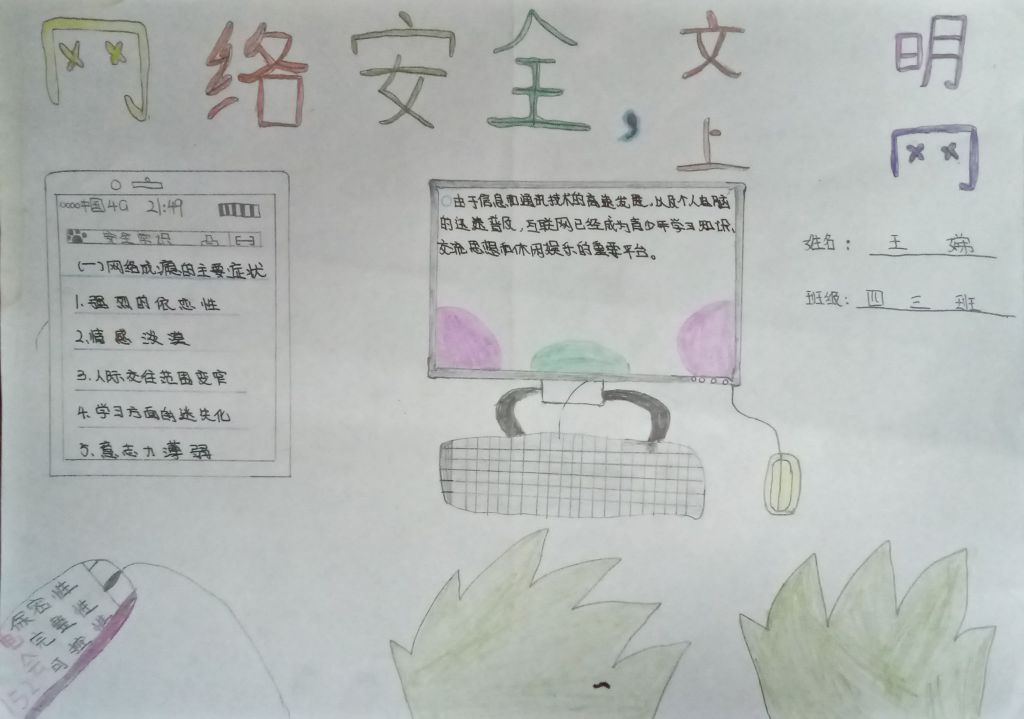 网络安全,文明
上网
中国4G 21:49
安全常识
(一)网络成瘾的主要症状
1.强烈的依恋性
2.情感淡漠
3.人际交往范围变窄
4.学习方面的迷失化
5.意志力薄弱
由于信息和通讯技术的高速发展,以及个人电脑
的迅速普及,互联网已经成为青少年学习知识、
交流思想和休闲娱乐的重要平台。
姓名:王娣
班级:四三班
保密性
完整性
可控性